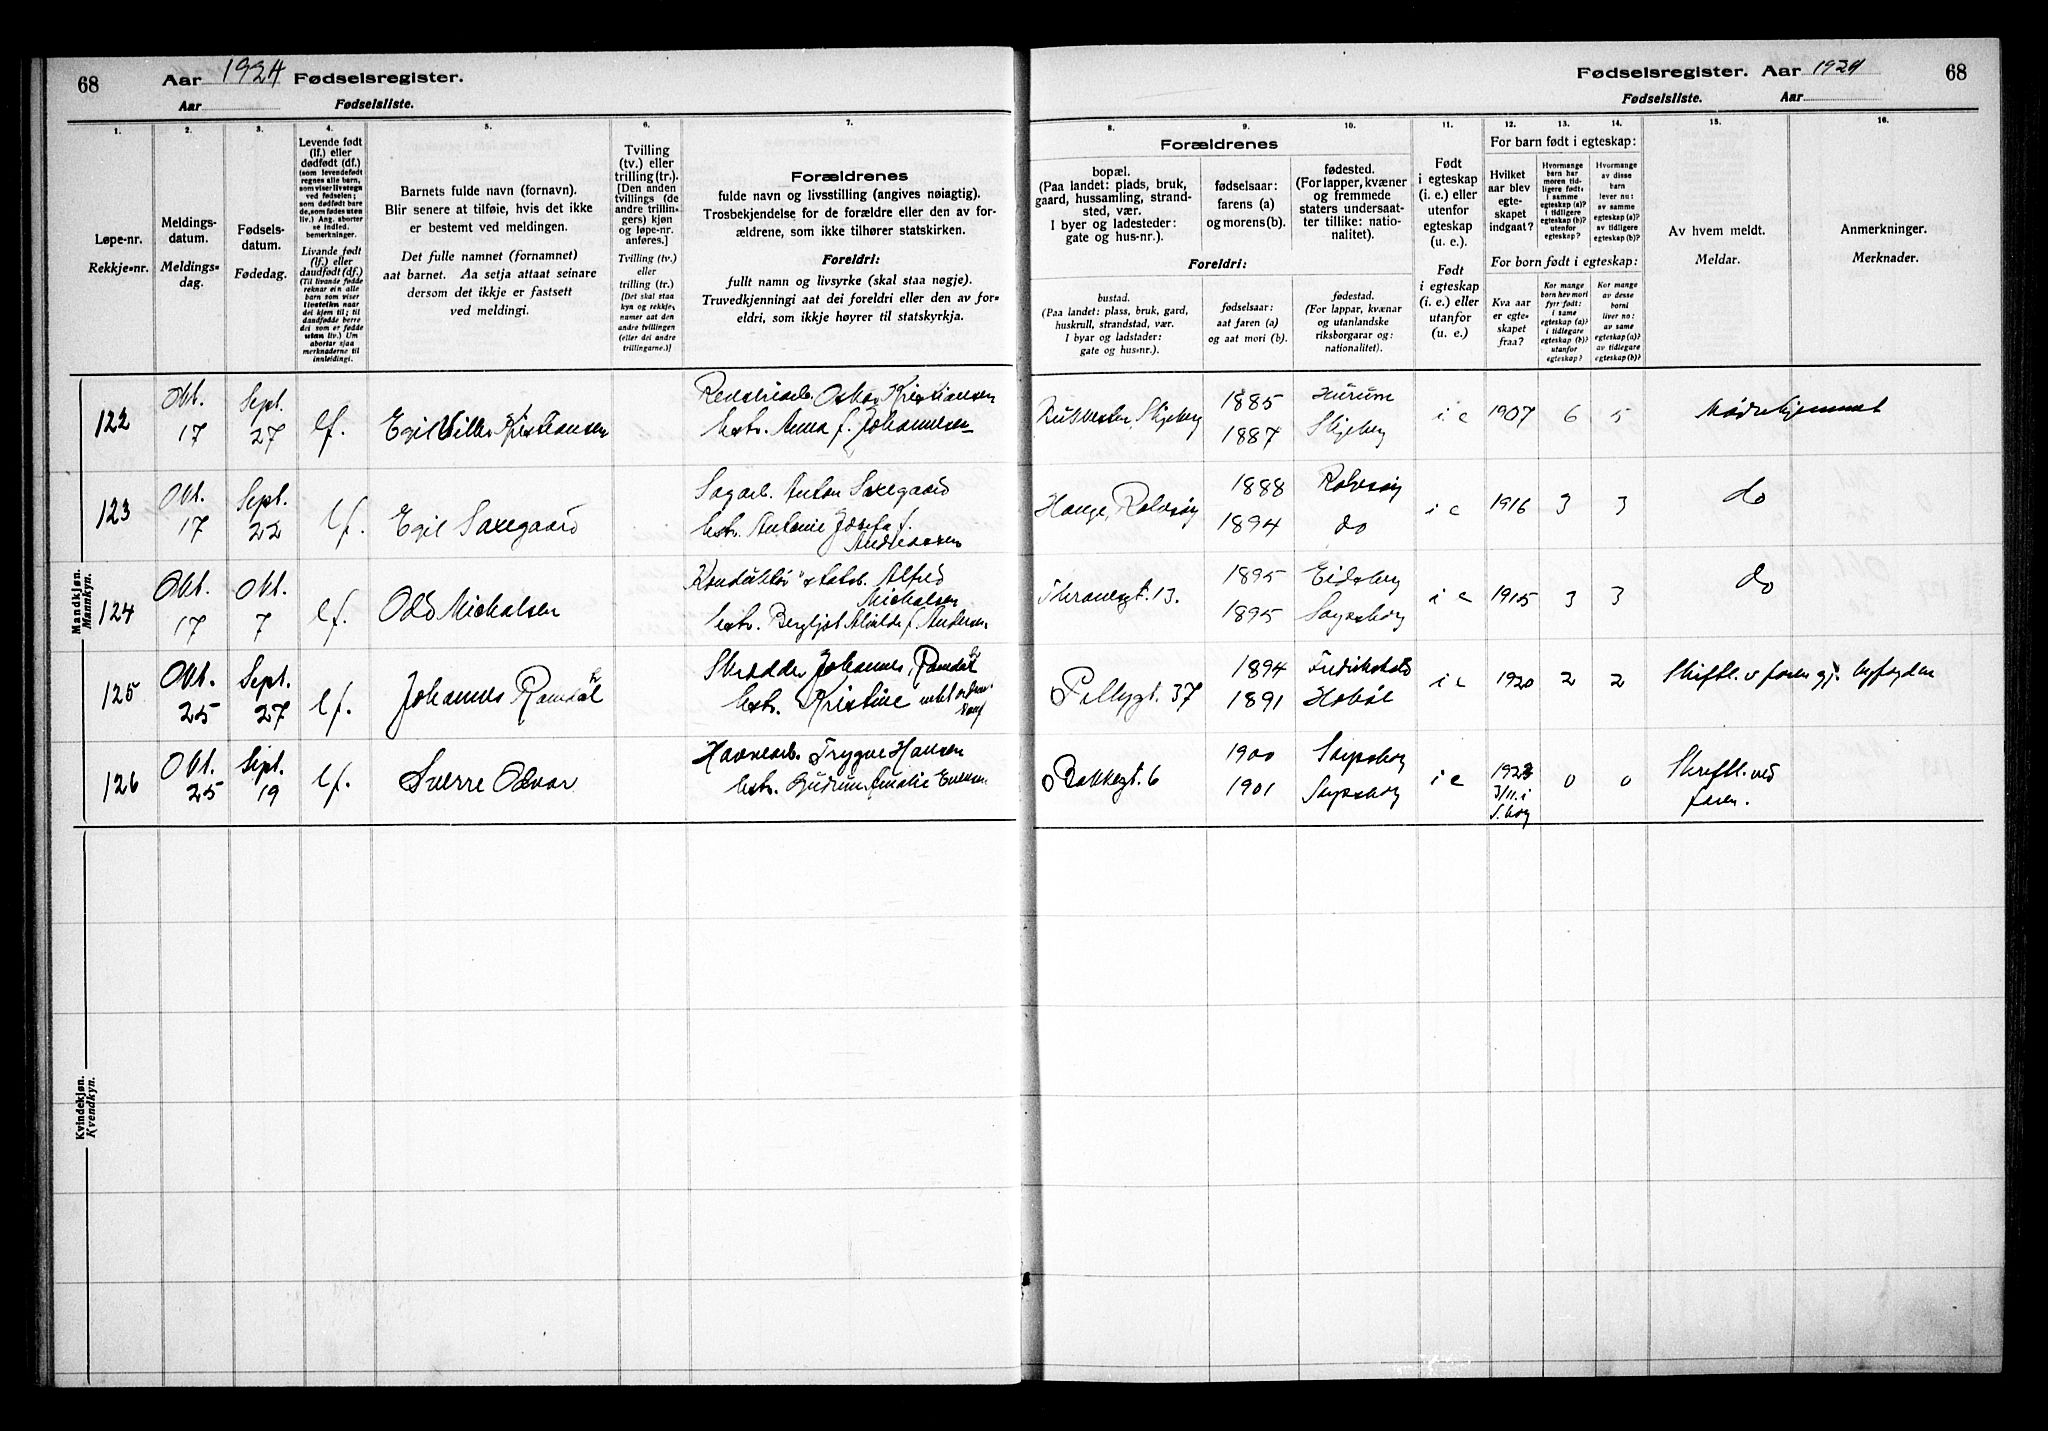 68 Aar 1924 Fødselsregister.
Aar Fødselsliste.
1. 2. 3. 4. 5. 6. 7.
Løpe-nr.
Rekkje-nr.
Meldings-
datum.
Meldings-
dag.
Fødsels-
datum.
Fødedag.
Levende født
(lf.) eller
dødfødt (df.)
(som levendefødt
regnes alle barn,
som viser livstegn
ved fødselen;
som dødfødt bare
de, som fødes uten
liv.) Ang. aborter
se indled.
bemerkninger.
Livande født
(lf.) eller
daudfødt (df.)
(Til livande fødde
reknar ein alle
barn som viser
livsteikn naar
dei kjem til; til
daudfødde berre
dei som er fødde
utan liv.) Um
abortar sjaa
merknaderne til
innleidingi.
Barnets fulde navn (fornavn).
Blir senere at tilføie, hvis det ikke
er bestemt ved meldingen.
Det fulle namnet (fornamnet)
aat barnet. Aa setja attaat seinare
dersom det ikkje er fastsett
ved meldingi.
Tvilling
(tv.) eller
trilling (tr.).
[Den anden
tvillings (de
andre trillin-
gers) kjøn
og løpe-nr.
anføres.]
Tvilling (tv.)
eller
trilling (tr.)
[Det skal staa
kyn og rekkje-
numer aat den
andre tvillingen
(eller dei andre
trillingarne.)]
Forældrenes
fulde navn og livsstilling (angives nøiagtig).
Trosbekjendelse for de forældre eller den av for-
ældrene, som ikke tilhører statskirken.
Foreldri:
fullt namn og livsyrke (skal staa nøgje).
Truvedkjenningi aat dei foreldri eller den av for-
eldri, som ikkje høyrer til statskyrkja.
Mandkjøn.
Mannkyn.
122 Okt. 17 Sept. 27 lf. Egil Kristiansen Oskar Kristiansen
hstr. Anna f. Johannesen
123 Okt. 17 Sept. 22 lf. Egil Saxegaard Sagarb. Anton Saxegaard
hstr. Antonie Josefa f.
Andreassen
124 Okt. 17 Okt. 7 lf. Odd Michalsen Konduktør Alfred
Michalsen
hstr. Bergljot Alvilde f. Andersen
125 Okt. 25 Sept. 27 lf. Johannes Ramdal Skrædder Johannes Ramdal
hstr. Kristine
126 Okt. 25 Sept. 19 lf. Sverre Odvar Havnearb. Trygve Hansen
hstr. Gudrun Amalie Evensen
Kvindekjøn.
Kvendkyn.
Fødselsregister. Aar 1924 68
Fødselsliste. Aar
8. 9. 10. 11. 12. 13. 14. 15. 16.
Forældrenes
bopæl.
(Paa landet: plads, bruk,
gaard, hussamling, strand-
sted, vær.
I byer og ladesteder:
gate og hus-nr.).
fødselsaar:
farens (a)
og morens (b).
fødested.
(For lapper, kvæner
og fremmede
staters undersaat-
ter tillike: natio-
nalitet).
Foreldri:
bustad.
(Paa landet: plass, bruk, gard,
huskrull, strandstad, vær.
I byar og ladstader:
gate og hus-nr.).
fødselsaar:
aat faren (a)
og aat mori (b).
fødestad.
(For lappar, kvænar
og utanlandske
riksborgarar og:
nationalitet).
Født
i egteskap
(i. e.) eller
utenfor
egteskap
(u. e.).
Født
i egteskap
(i. e.) eller
utanfor
(u. e.).
For barn født i egteskap:
Hvilket
aar blev
egte-
skapet
indgaat?
Hvormange
barn har
moren tid-
ligere født:
i samme
egteskap (a)?
i tidligere
egteskap (b)?
utenfor
egteskap?
Hvormange
av disse
barn
lever nu:
av samme
egteskap (a)?
av tidligere
egteskap (b)?
For born født i egteskap:
Kva aar
er egte-
skapet
fraa?
Kor mange
born hev mori
fyrr født:
i same
egteskap (a)?
i tidlegare
egteskap (b)?
utanfor
egteskap?
Kor mange
av desse
borni
liver no:
av same
egteskap (a)?
av tidlegare
egteskap (b)?
Av hvem meldt.
Meldar.
Anmerkninger.
Merknader.
Skjeberg 1885 Hurum i e 1907 6 5 Mødrehjemmet
1887 Skjeberg
Hauge, Rolvsøy 1888 Rolvsøy i e 1916 3 3 do
1894 do
Thranesgt. 13. 1895 Eidsberg i e 1915 3 3 do
1895 Sarpsborg
Pellygt. 37 1894 Fredrikstad i e 1920 2 2 Skriftl. v faren gj. byfogden
1891 Hobøl
Bakkegt. 6 1900 Sarpsborg i e 1923 0 0 Skriftl. ved
1901 Sarpsborg 3/11. i faren.
S.borg